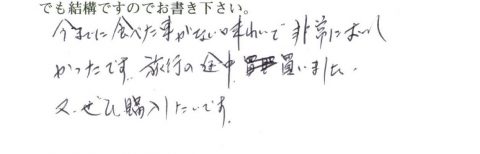 でも結構ですのでお書き下さい。
今までに食べた事がない味わいで非常においし
かったです。旅行の途中買いました。
又、ぜひ購入したいです。